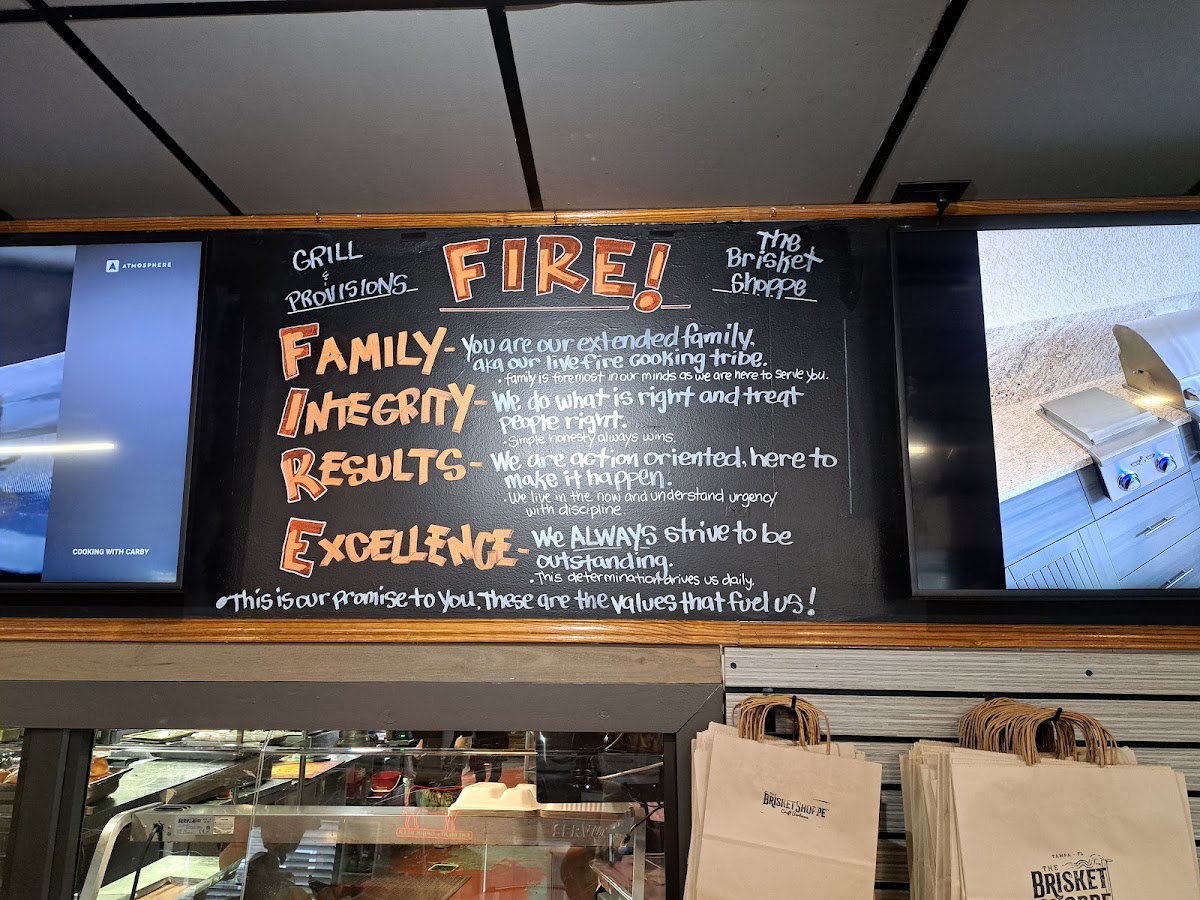 GRILL
&
PROVISIONS
FIRE!
The
Brisket
Shoppe
FAMILY - You are our extended family,
aka our live fire cooking tribe.
• family is foremost in our minds as we are here to serve you.
INTEGRITY - We do what is right and treat
people right.
• Simple honesty always wins.
RESULTS - We are action oriented, here to
make it happen.
• We live in the now and understand urgency
with discipline.
EXCELLENCE - We ALWAYS strive to be
outstanding.
• This determination drives us daily.
• This is our promise to you, These are the values that fuel us!
A ATMOSPHERE
COOKING WITH CARBY
BRISKET SHOPPE
TAMPA · FL
THE
BRISKET
SHOPPE